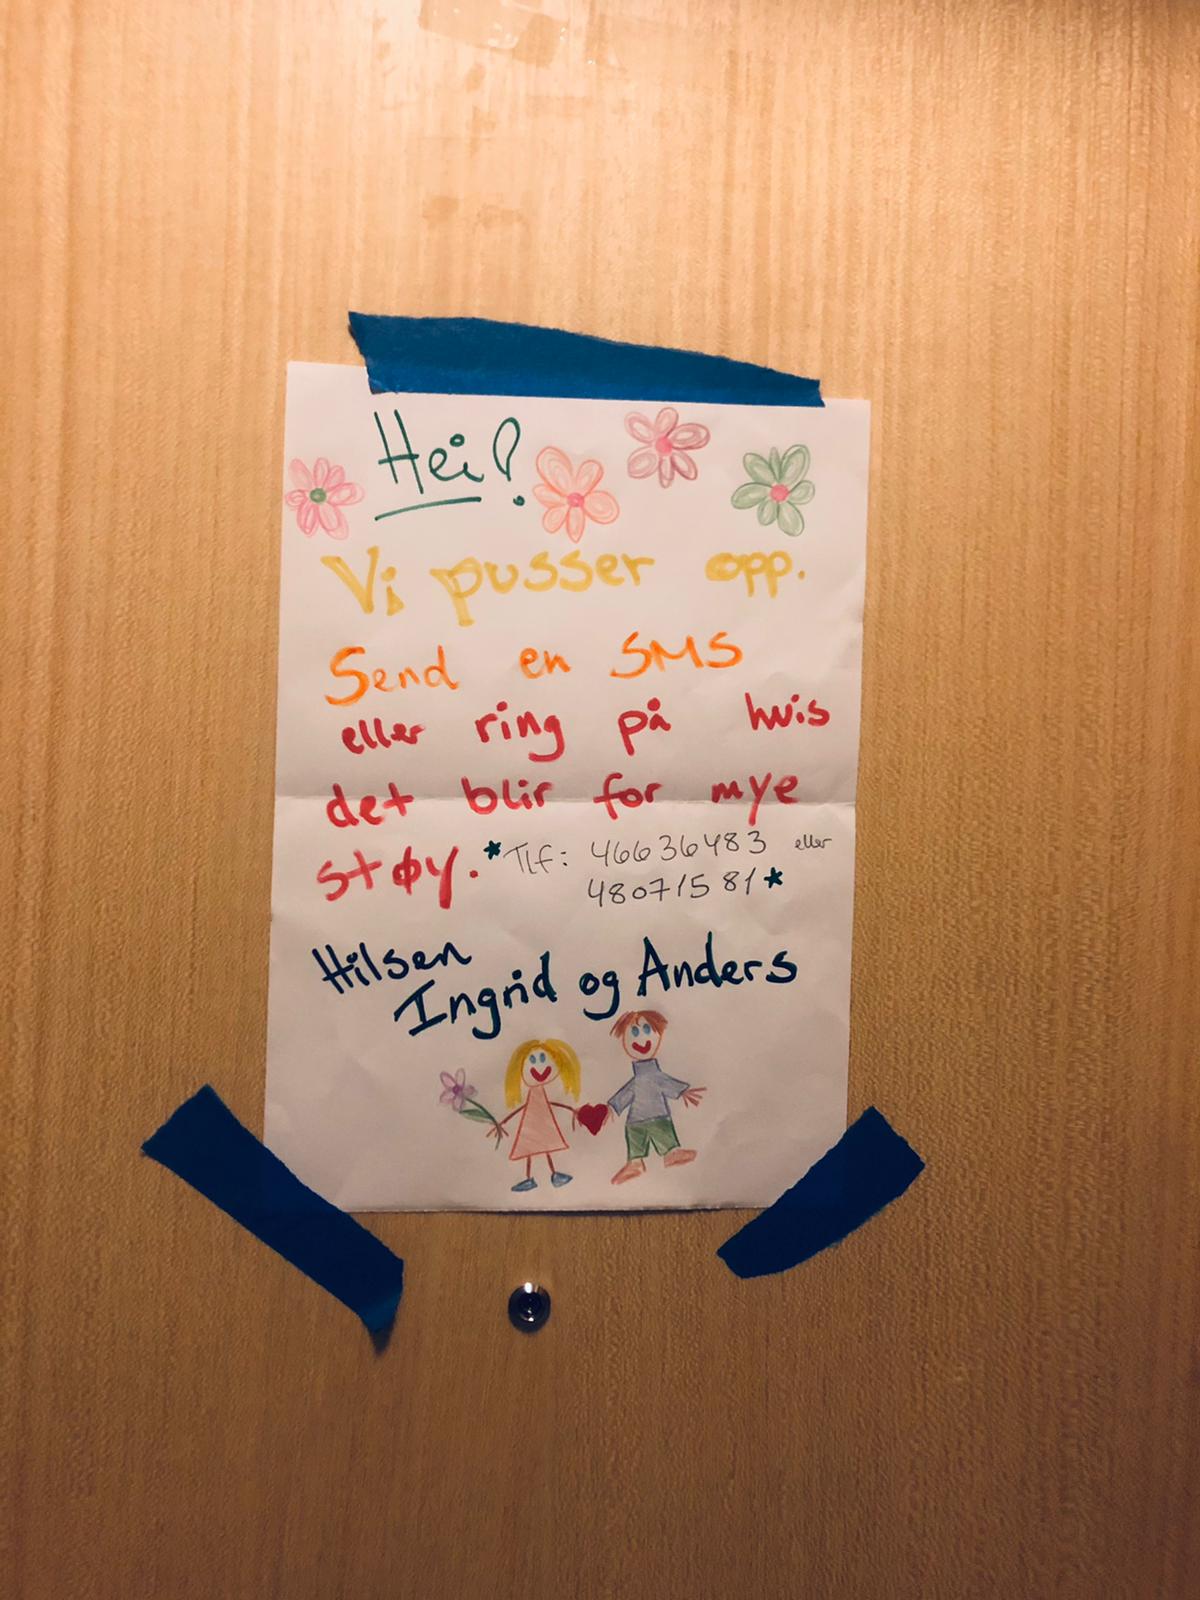 Hei!
Vi pusser opp.
Send en SMS
eller ring på hvis
det blir for mye
støy. *Tlf: 46636483 eller
48071581*
Hilsen
Ingrid og Anders